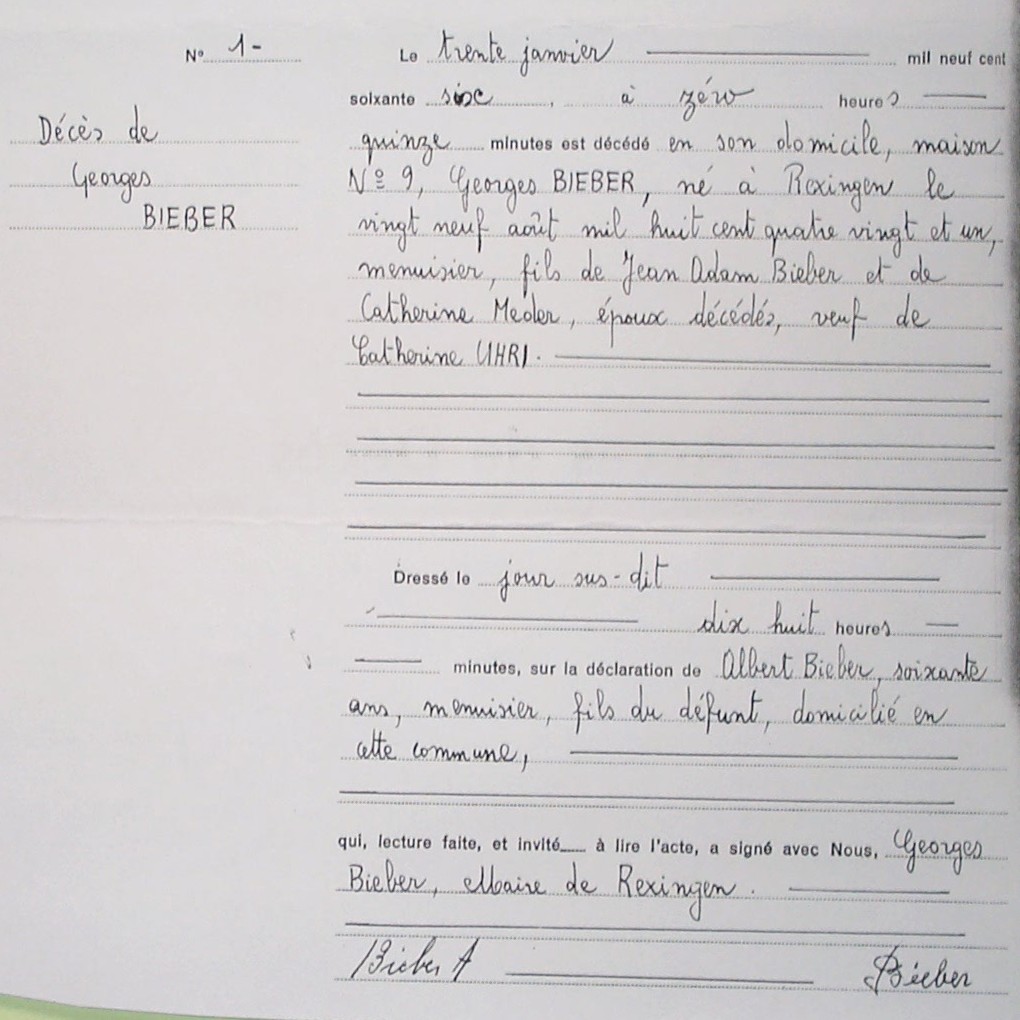 N° 1-
Décès de
Georges
BIEBER
Le trente janvier mil neuf cent
soixante six, à zéro heures
quinze minutes est décédé en son domicile, maison
N° 9, Georges BIEBER, né à Rexingen le
vingt neuf août mil huit cent quatre vingt et un,
menuisier, fils de Jean Adam Bieber et de
Catherine Meder, époux décédés, veuf de
Catherine UHRI.
Dressé le jour sus-dit
dix huit heures
minutes, sur la déclaration de Albert Bieber, soixante
ans, menuisier, fils du défunt, domicilié en
cette commune,
qui, lecture faite, et invité à lire l'acte, a signé avec Nous, Georges
Bieber, Maire de Rexingen.
Bieber A Bieber